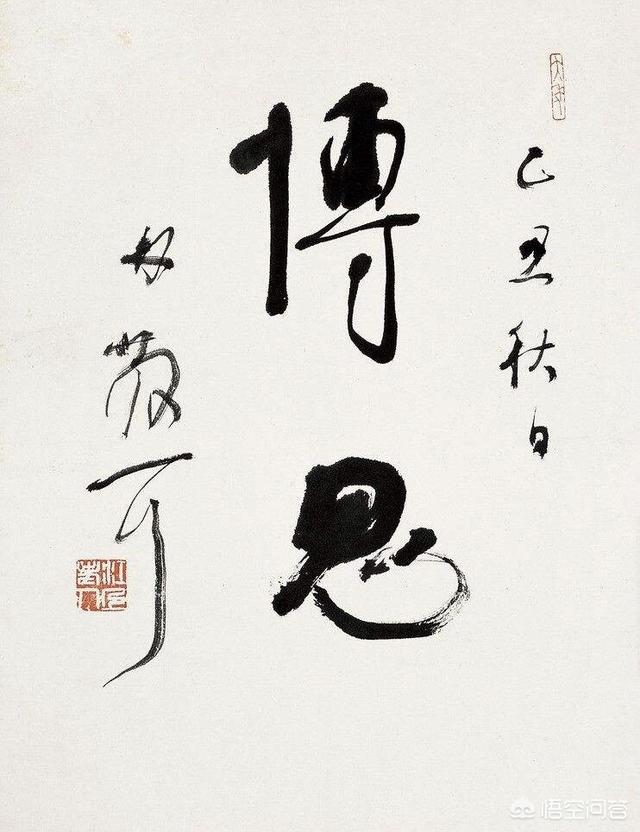 乙丑秋日
博思
林散耳
悟空问答